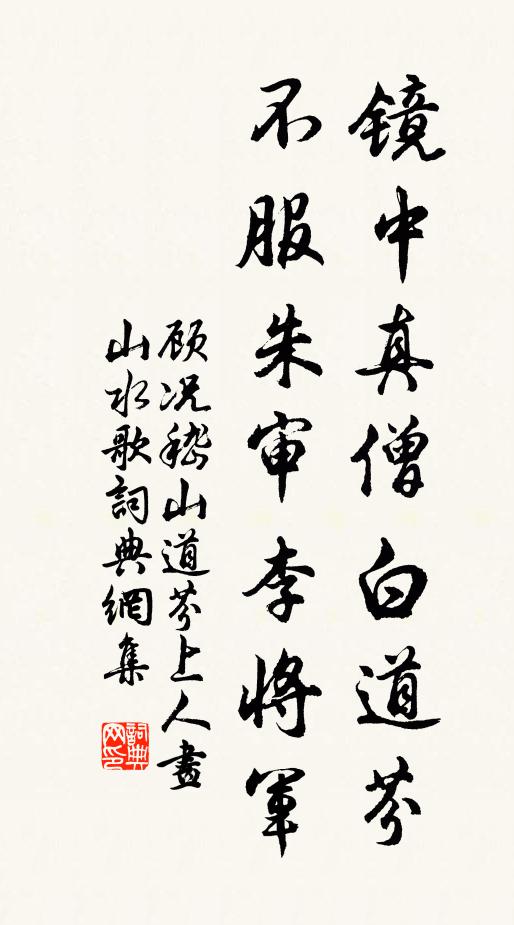 镜中真僧白道芬
不服朱审李将军
顾况嵇山道芬上人畫
山水歌詞典網集
詞典
网印